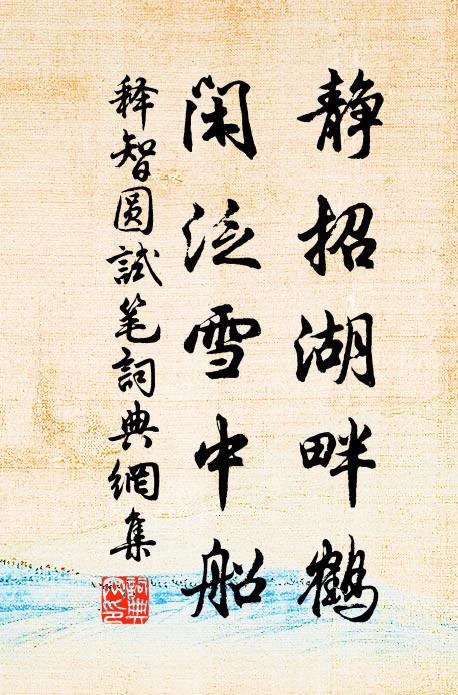 静招湖畔鹤
闲泛雪中船
释智圆試笔詞典網集